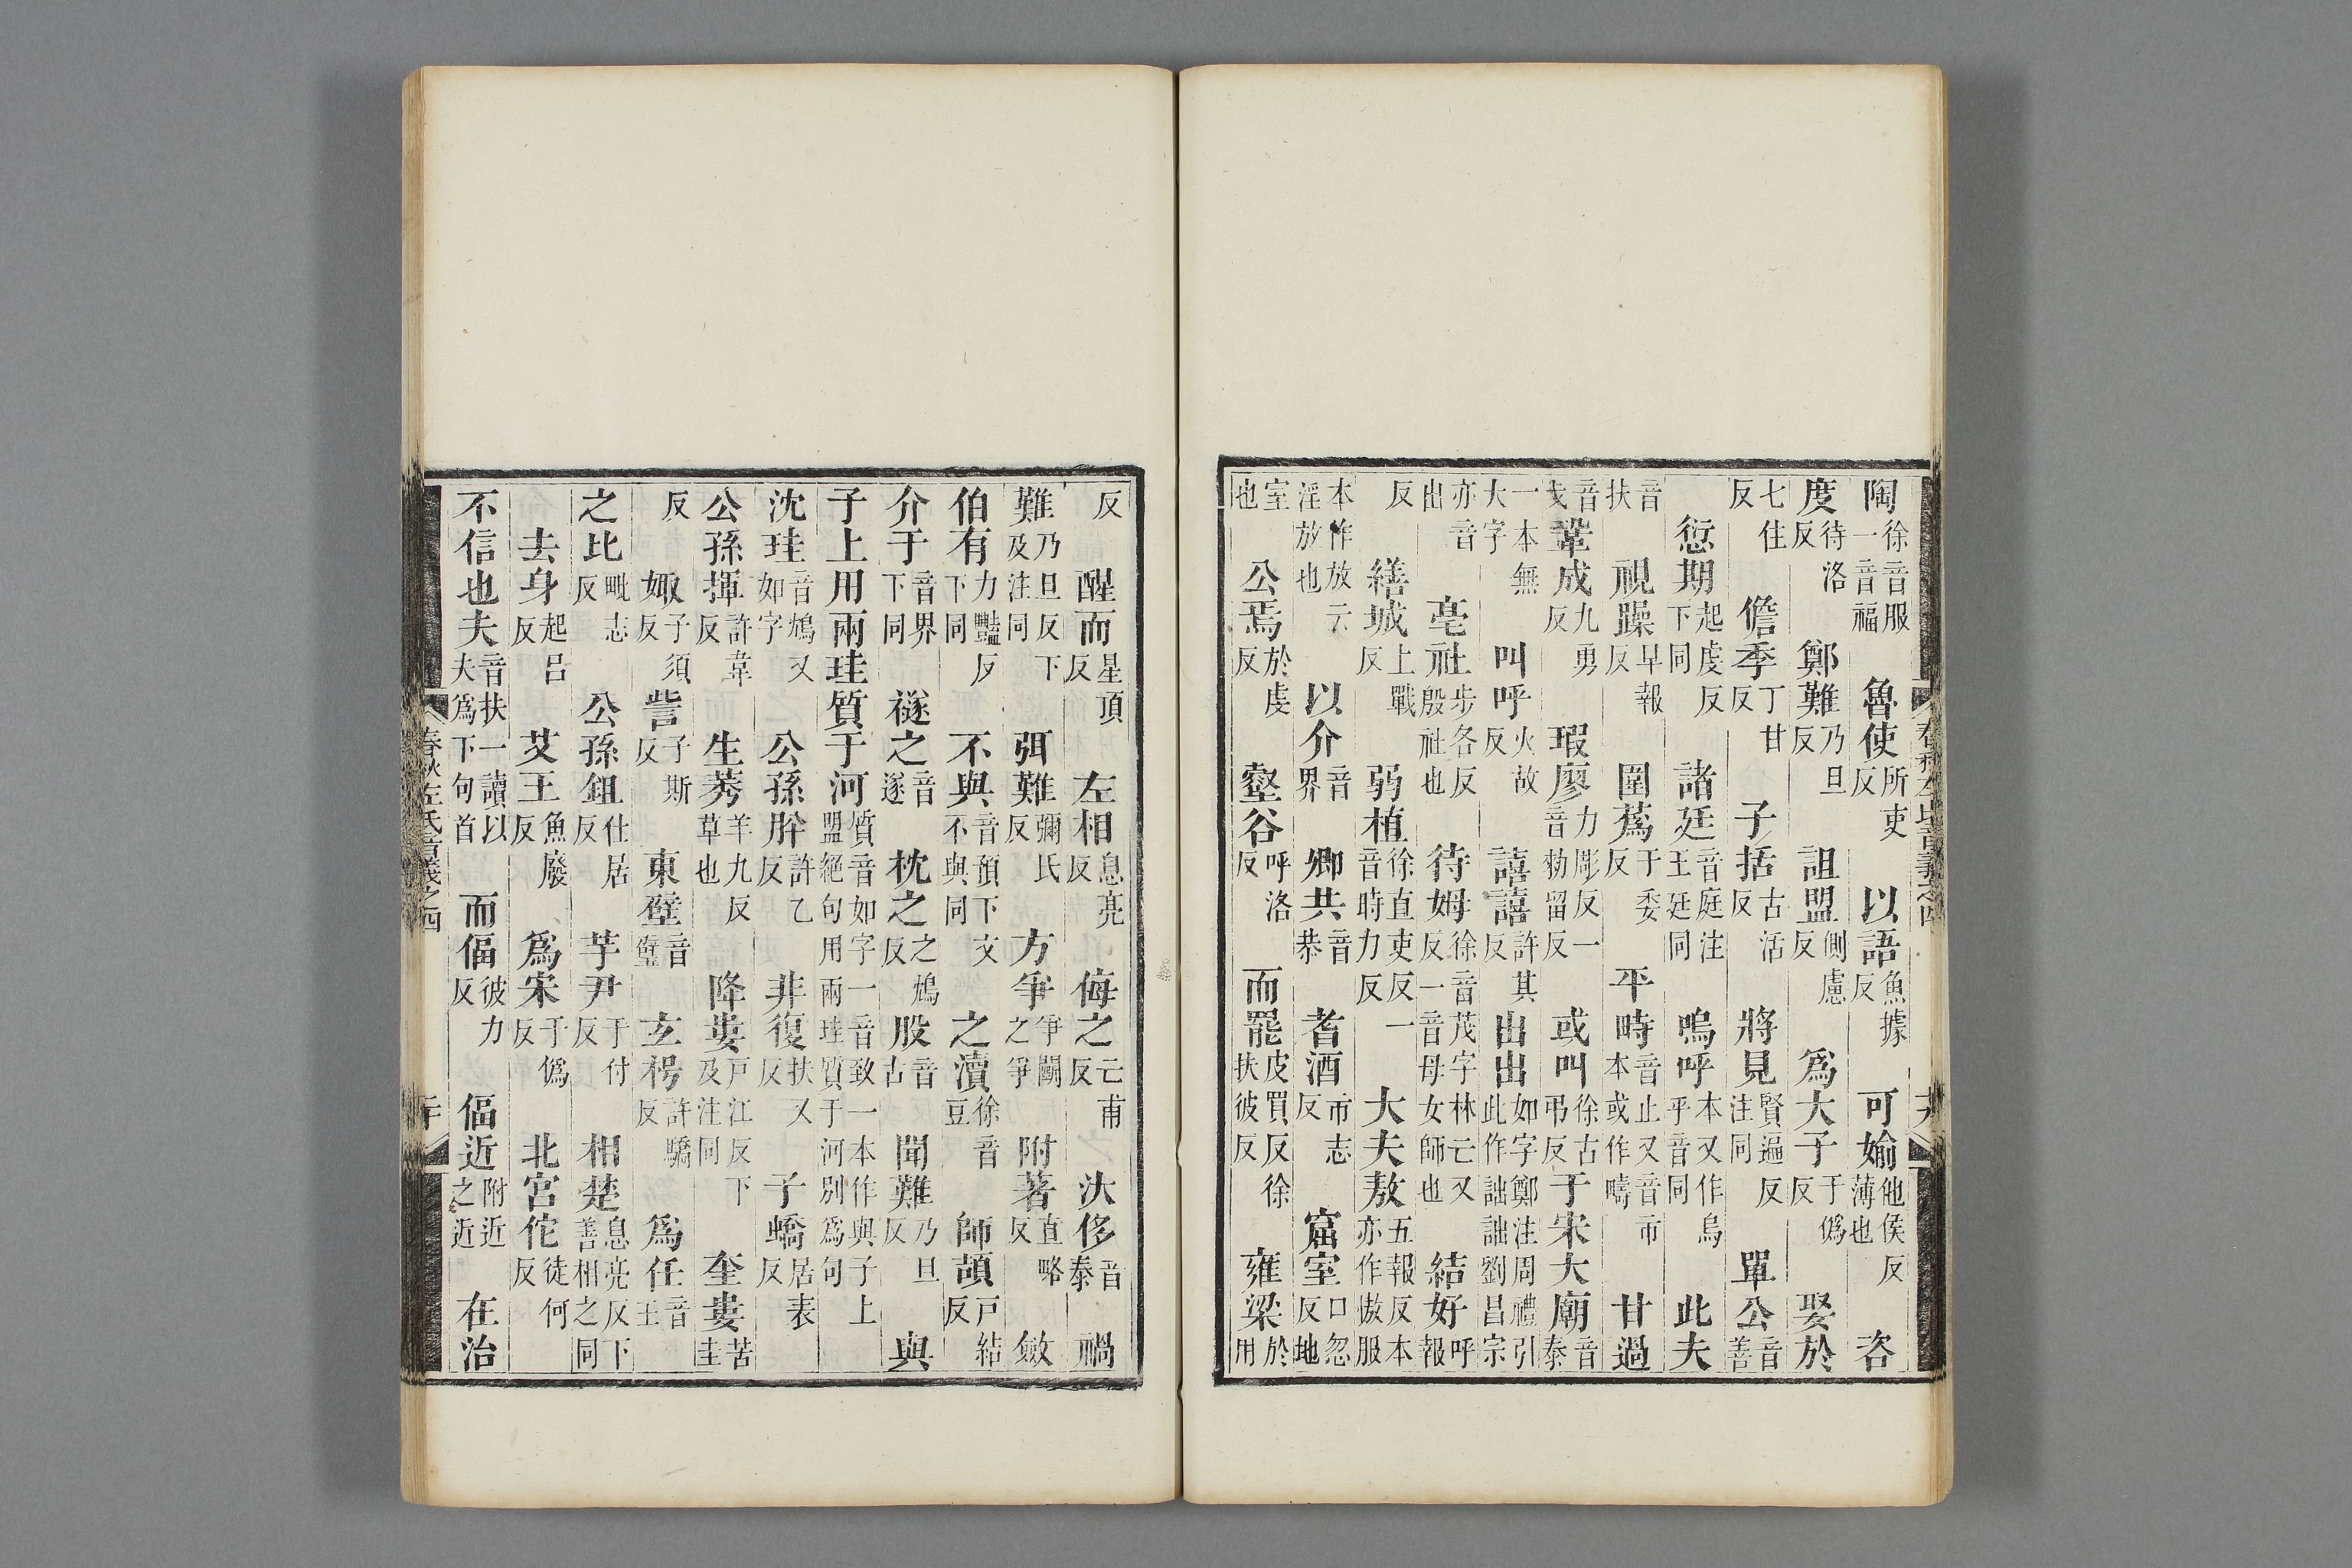 陶徐音服一音福魯使所吏反以語魚據反可媮他侯反薄也咨
度待洛反鄭難乃旦反詛盟側慮反爲大子于僞反娶於
七住反儋季丁甘反子括古活反將見賢遍反注同單公音善
愆期起虔反下同諸廷音庭注王廷同嗚呼本又作烏乎音同此夫
音扶視躁早報反圍蔿于委反平畤音止又音市本或作疇甘過
音戈鞏成九勇反瑕廖力彫反一音勑留反或叫徐古弔反于宋大廟音泰
一本無大字叫呼火故反譆譆許其反出出如字鄭注周禮引此作詘詘劉昌宗
亦音出亳社步各反殷社也待姆徐音茂字林亡又反一音母女師也結好呼報
反繕城上戰反弱植徐直吏反一音時力反大夫敖五報反本亦作傲服
本作放云淫放也以介音界卿共音恭耆酒市志反窟室口忽反地
室也公焉於虔反壑谷呼洛反而罷皮買反徐扶彼反雍梁於用
反醒而星頂反左相息亮反侮之亡甫反汏侈音泰禍
難乃旦反下及注同弭難彌氏反方爭爭鬭之爭附著直略反斂
伯有力豔反下同不與音預下文不與同之瀆徐音豆師頡戶結反
介于音界下同襚之音遂枕之之鴆反股音古聞難乃旦反與
子上用兩珪質于河質音如字一音致一本作與子上盟絕句用兩珪質于河別爲句
沈珪音鴆又如字公孫肸許乙反非復扶又反子蟜居表反
公孫揮許韋反生莠羊九反草也降婁戶江反下及注同奎婁苦圭
反娵子須反訾子斯反東壁音璧玄枵許驕反爲任音王
之比毗志反公孫鉏仕居反芋尹于付反相楚息亮反下善相之同
去身起呂反艾王魚廢反爲宋于僞反北宮佗徒何反
不信也夫音扶一讀以夫爲下句首而偪彼力反偪近附近之近在治
春秋左氏音義之四
春秋左氏音義之四